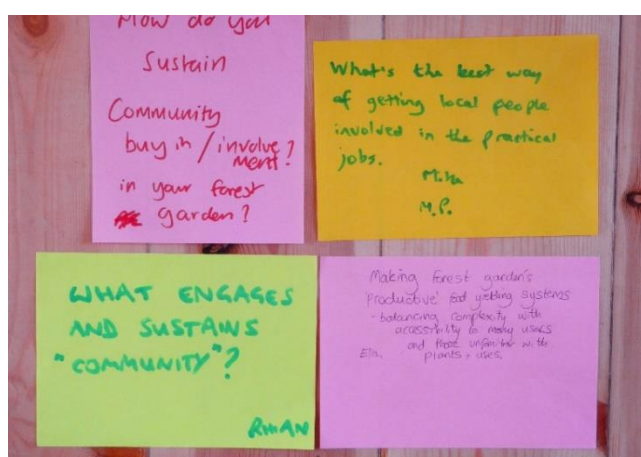 How do you
Sustain
Community
buy in / involve
ment?
in your forest
garden?
What's the best way
of getting local people
involved in the practical
jobs.
M.P.
WHAT ENGAGES
AND SUSTAINS
"COMMUNITY"?
RHIAN
Making forest garden's
'productive' food yielding systems
- balancing complexity with
accessibility to many users
and those unfamiliar with
plants + uses.